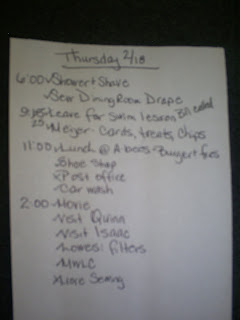 Thursday 2/18
6:00 Shower + Shave
Sew Dining Room Drape
Leave for swim lesson Bill called
25 Meijer - Cards, treats, chips
11:00 Lunch @ Abees Burger + fries
Shoe Shop
Post office
Car wash
2:00 Movie
Visit Quinn
Visit Isaac
Lowes: filters
MWLC
Sewing